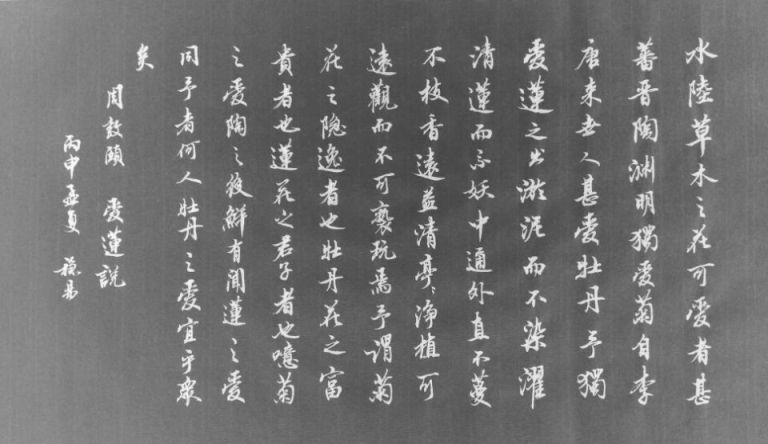 水陸草木之花可愛者甚
蕃晉陶渊明獨愛菊自李
唐来世人甚愛牡丹予獨
愛蓮之出淤泥而不染濯
清蓮而不妖中通外直不蔓
不枝香遠益清亭〻淨植可
遠觀而不可褻玩焉予謂菊
花之隐逸者也牡丹花之富
貴者也蓮花之君子者也噫菊
之愛陶之後鮮有聞蓮之愛
同予者何人牡丹之愛宜乎眾
矣
周敦頤 愛蓮說
丙申孟夏